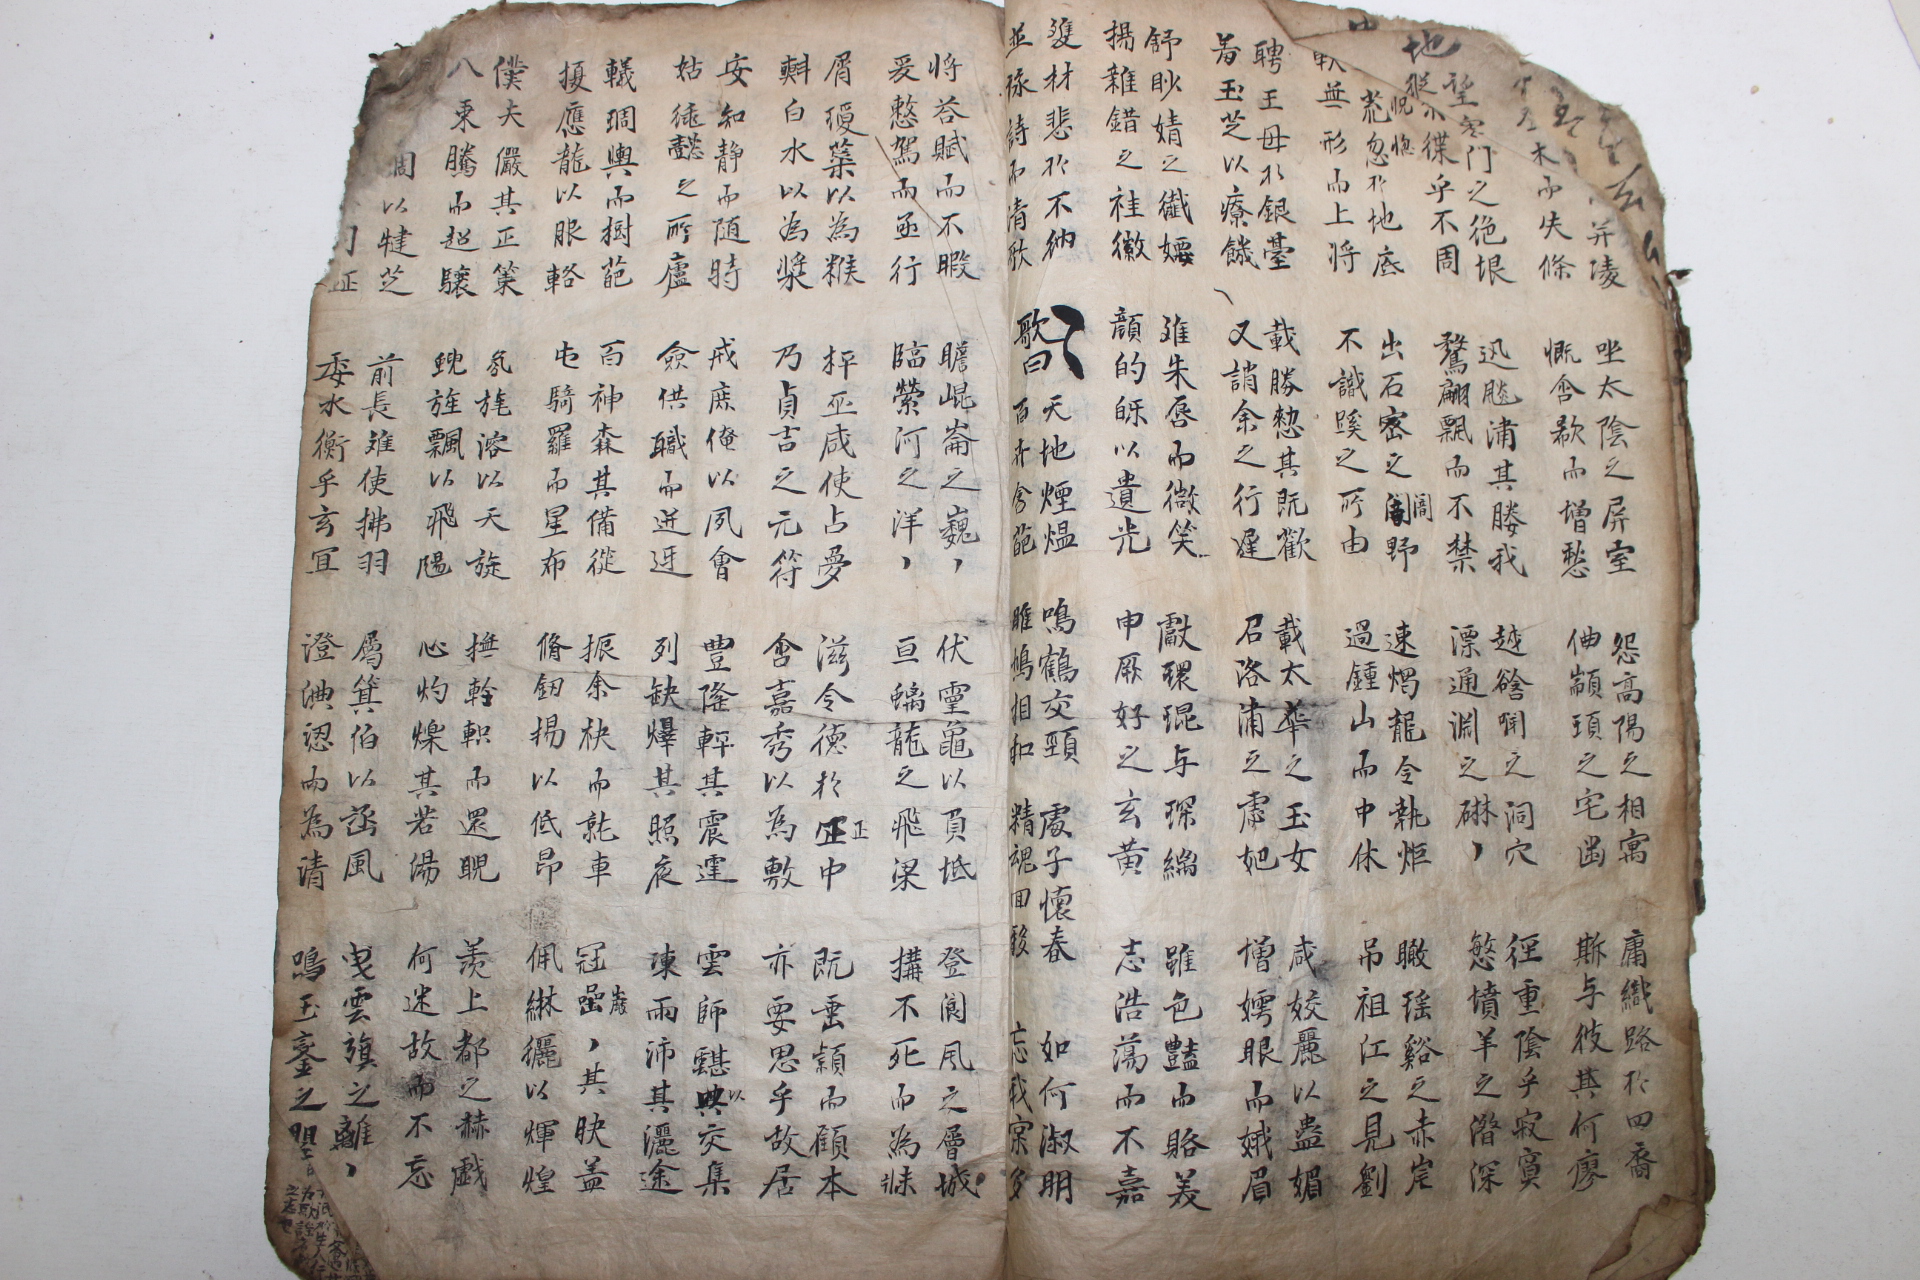 并凌
木而失條
坐太陰之屏室
慨含欷而增愁
怨高陽之相寓
伷顓頊之宅幽
庸織路於四裔
斯与彼其何瘳
地
望寒門之絶垠
縱余緤乎不周
迅飈潚其媵我
鶩翩飄而不禁
越谽㗿之洞穴
漂通淵之碄丶
經重陰乎寂寞
慜墳羊之潛深
荒忽於地底
軼無形而上將
出石密之闇野
不識蹊之所由
速燭龍令執炬
過鍾山而中休
瞰瑤谿之赤岸
吊祖江之見劉
聘王母於銀臺
羞玉芝以療饑
載勝憖其既歡
又誚余之行遲
載太華之玉女
召洛浦之虙妃
咸姣麗以蠱媚
增嫮眼而娥眉
舒眇婧之纖腰
揚雜錯之袿徽
離朱唇而微笑
顏的皪以遺光
獻環琨与琛縭
申厥好之玄黃
雖色豔而賂美
志浩蕩而不嘉
雙材悲於不納
並詠詩而清歌
歌曰
天地煙熅
百卉含葩
鳴鶴交頸
雎鳩相和
處子懷春
精魂回移
如何淑明
忘我實多
將荅賦而不暇
爰整駕而亟行
瞻崐崙之巍丶
臨縈河之洋丶
伏靈龜以負坻
亘螭龍之飛梁
登閬風之層城
搆不死而為牀
屑瓊蘂以為糇
㪺白水以為漿
抨巫咸使占夢
乃貞吉之元符
滋令德於正中
含嘉秀以為敷
既垂潁而顧本
亦要思乎故居
安知静而随時
姑徳懿之所廬
戒庶僚以夙會
僉供職而迸迓
豊隆軯其震霆
列缺爗其照夜
雲師䨴以交集
凍雨沛其灑途
轙琱輿而樹葩
擾應龍以服輅
百神森其備從
屯騎羅而星布
振余袂而就車
脩劒揚以低昂
冠嵒丶其映盖
佩綝纚以煇煌
僕夫儼其正策
八乘騰而超驤
氛旄溶以天旋
蜺旌飄以飛颺
撫軨軹而還睨
心灼爍其若湯
羨上都之赫戲
何迷故而不忘
以揵芝
前長離使拂羽
委水衡乎玄冝
屬箕伯以函風
澄淟涊而為清
曳雲旗之離丶
鳴玉鑾之